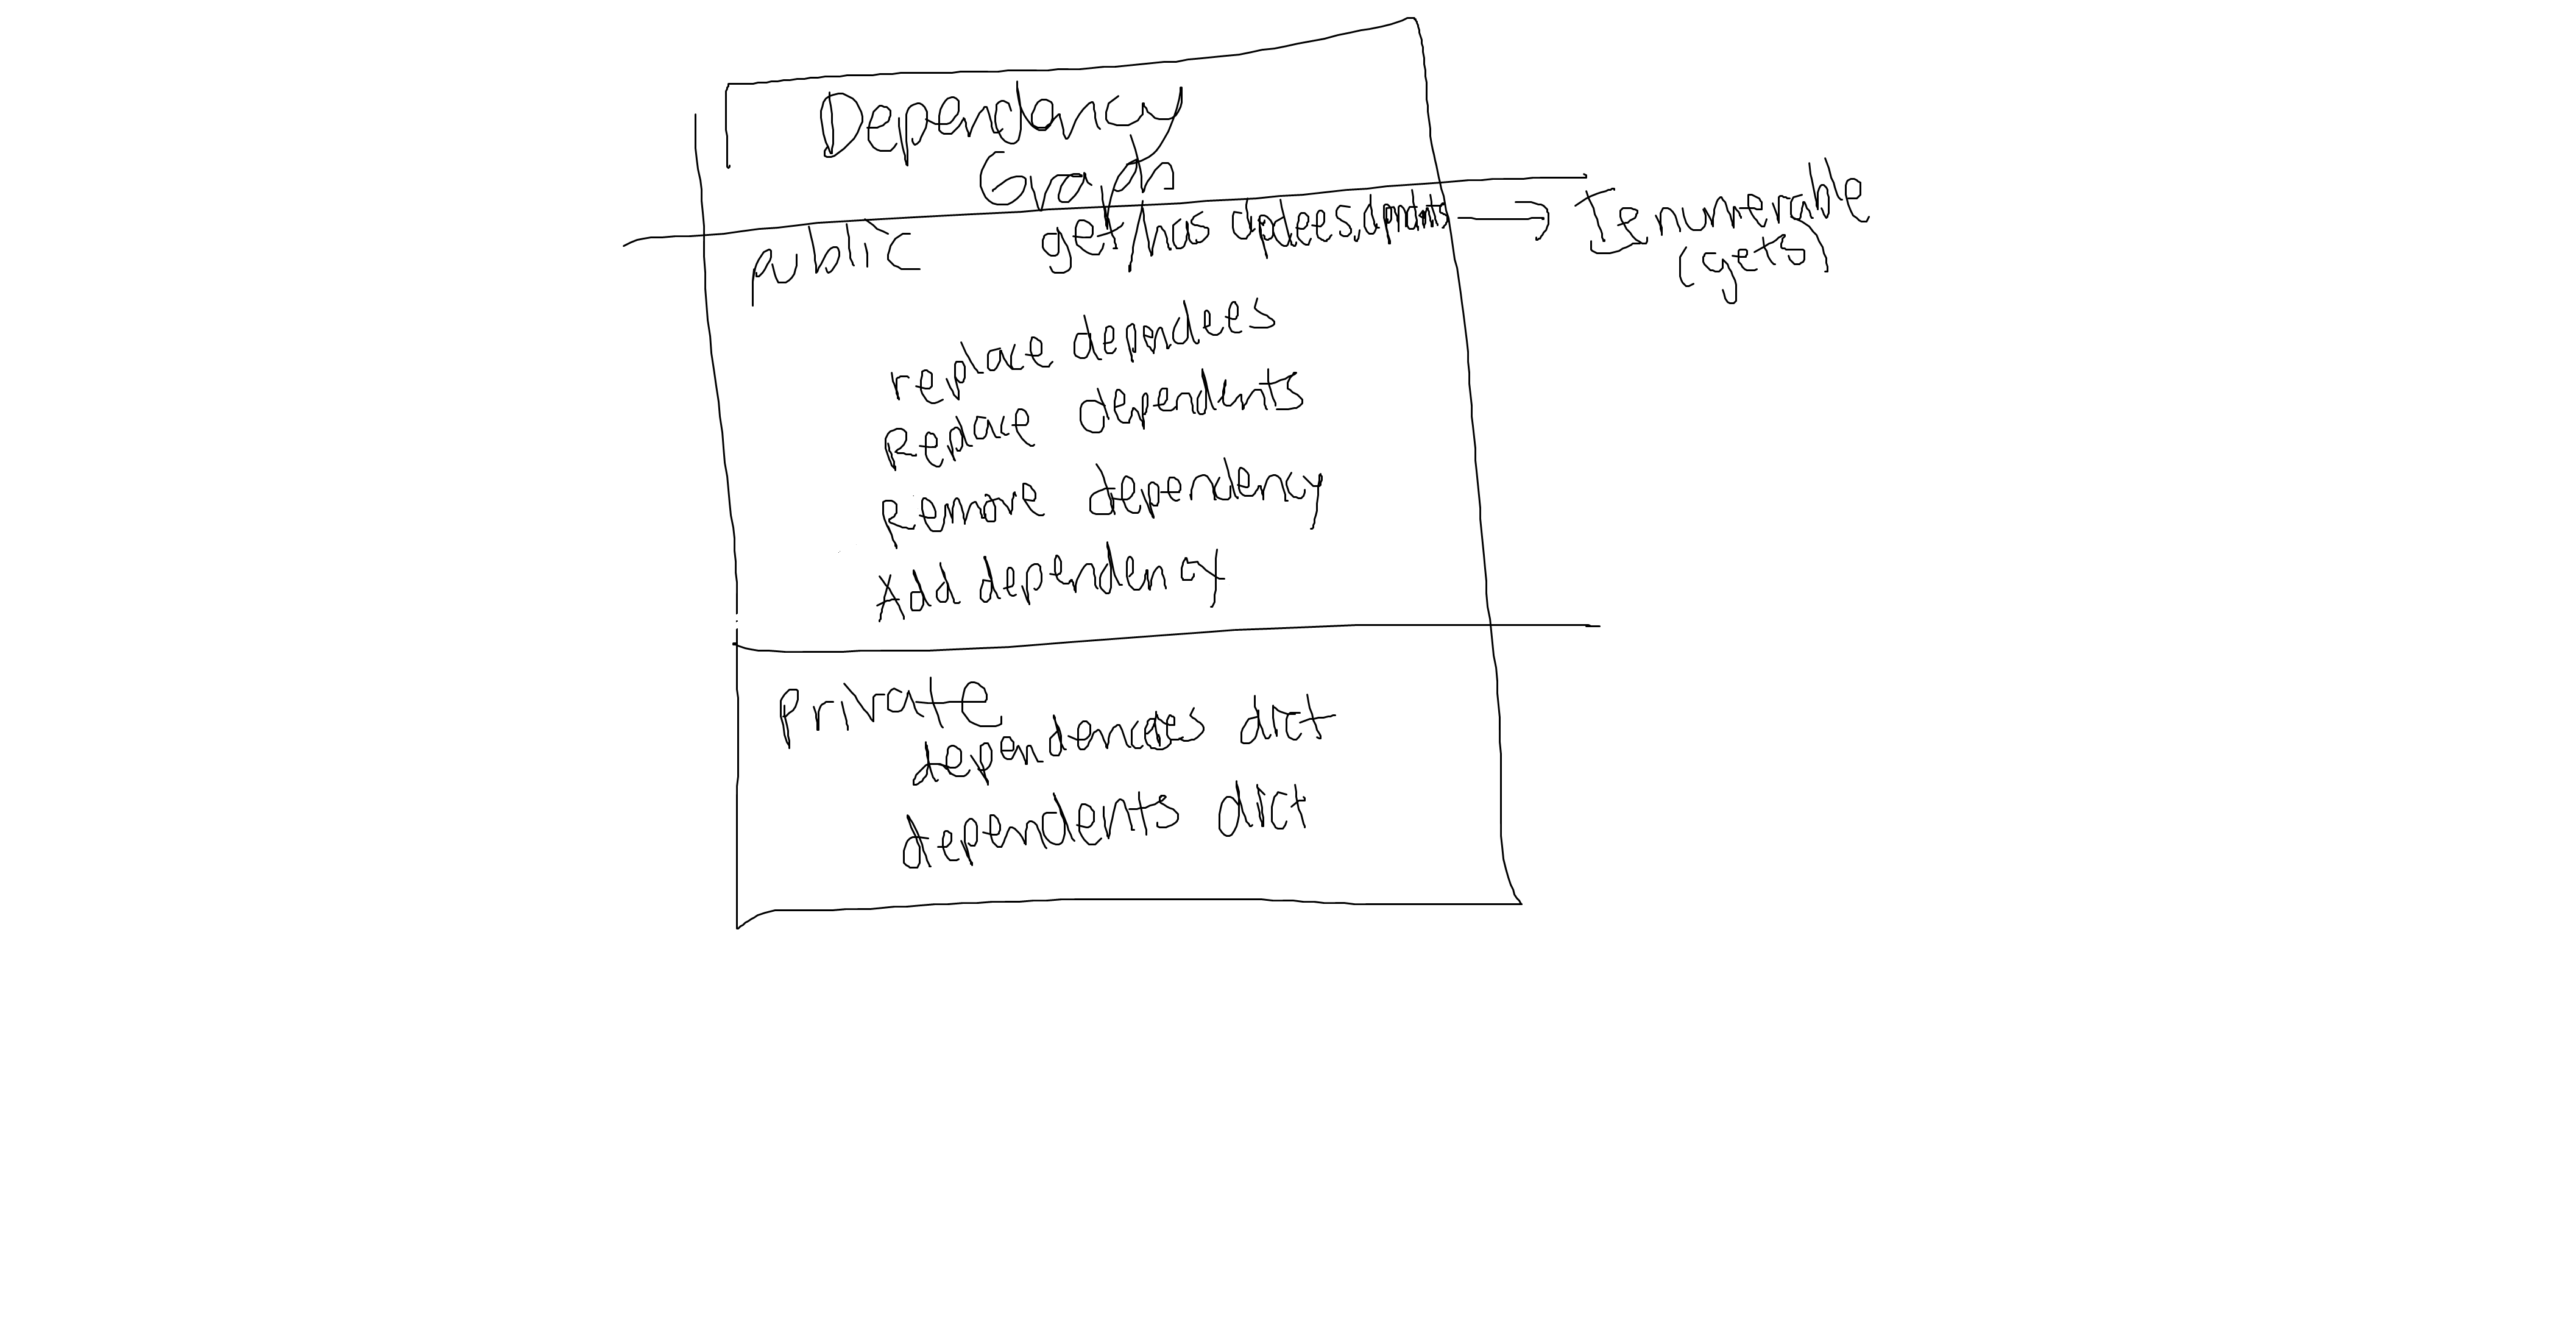 Dependency
Graph
public get/has dpdees, dpndnts → Ienumerable
(gets)
replace dependees
Replace dependents
Remove dependency
Add dependency
Private
dict
dependents dict